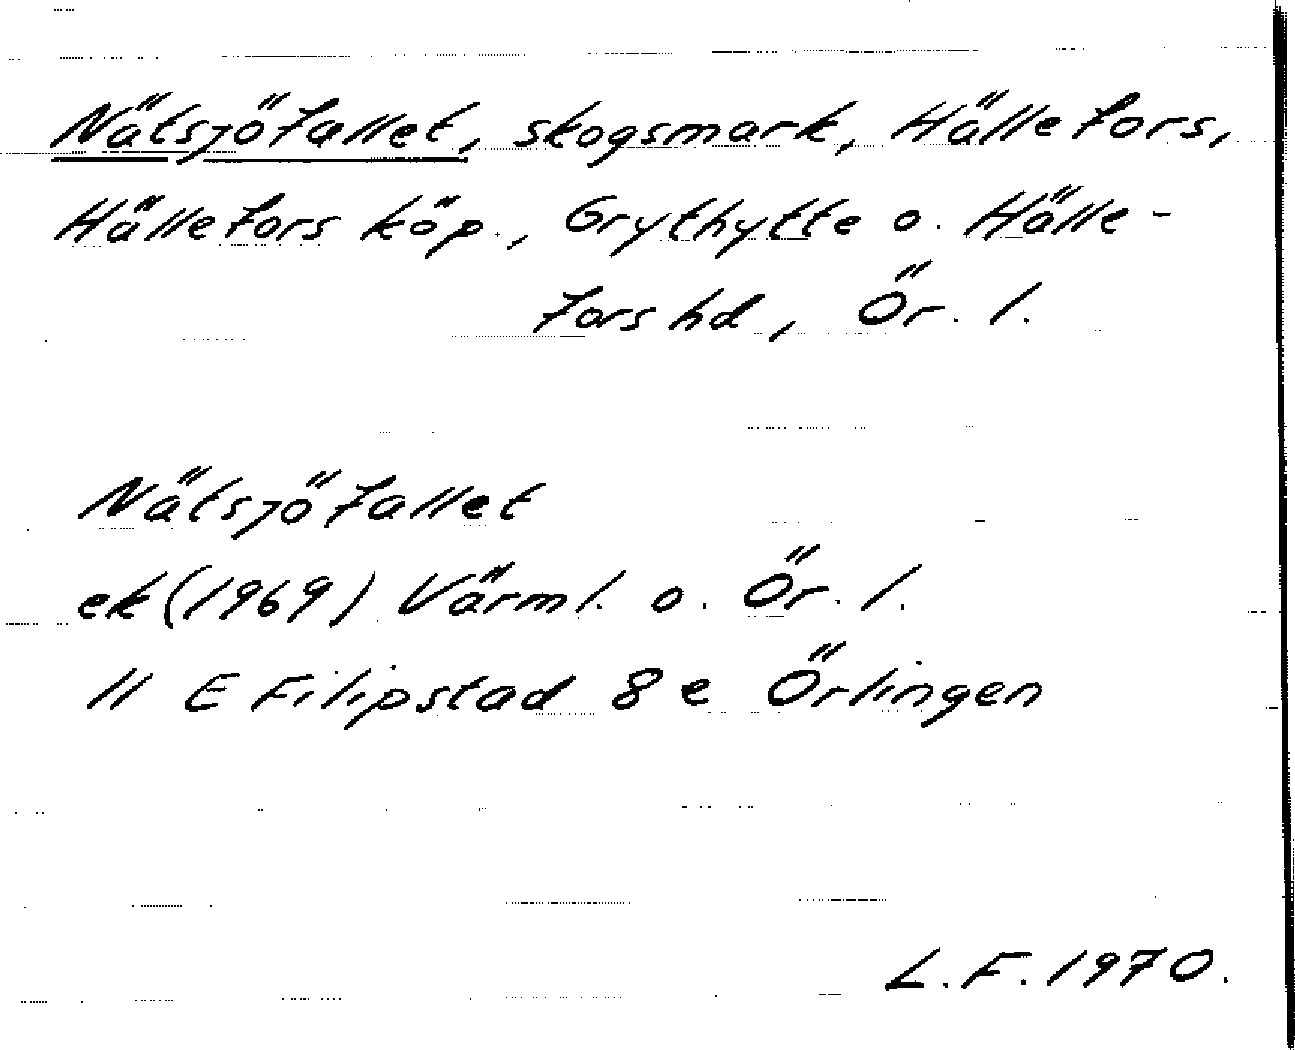 Nätsjöfallet, skogsmark, Hällefors,
Hällefors köp., Grythytte o. Hälle-
fors hd, Ör. l.
Nätsjöfallet
ek (1969) Värml. o. Ör. l.
11 E Filipstad 8 e Örlingen
L. F. 1970.